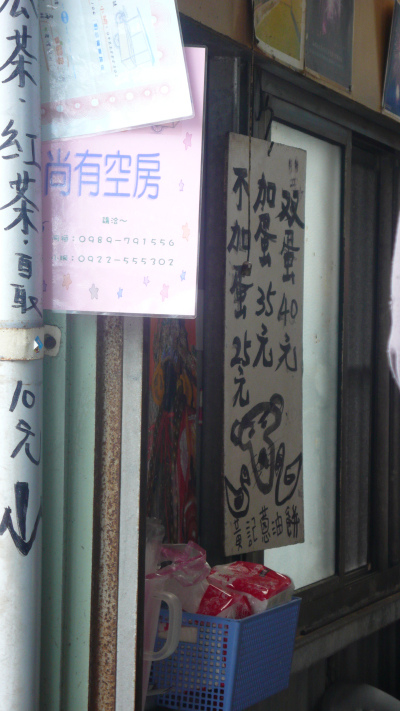 瓜茶．紅茶．自取
10元
尚有空房
請洽～
0989-791556
0922-555302
双蛋40元
加蛋35元
不加蛋25元
黃記蔥油餅